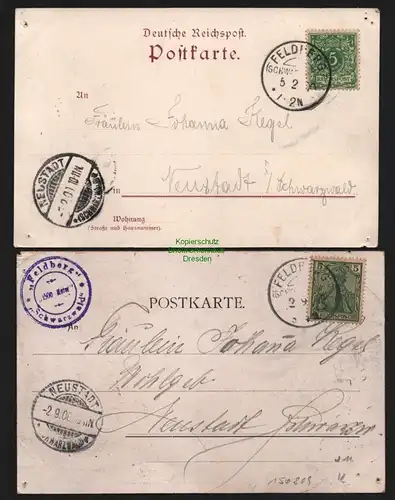 Deutsche Reichspost.
Postkarte.
FELDBERG
5 2
1-2N
5
An
Fräulein Johanna Hegel
NEUSTADT
in
Neustadt i/Schwarzwald
Wohnung
(Straße und Hausnummer)
Kopierschutz
Philagentur
Dresden
"Feldberg"
1500 Meter
Schwarzwald
POSTKARTE.
FELDBERG
5
An
Fräulein Johanna Hegel
Wohlgeb
NEUSTADT
Neustadt Schwarzw
150209